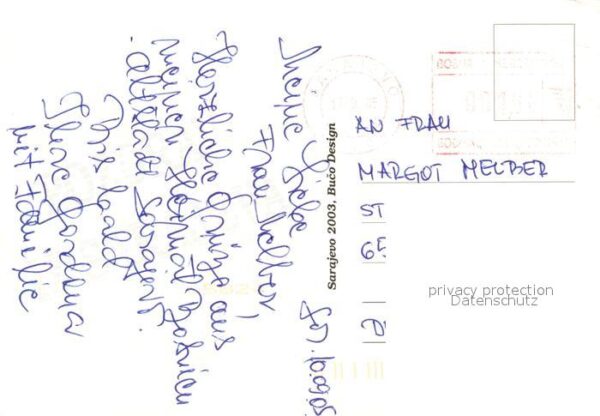 Sr, 10.09.05
Meine Liebe
Frau Melber,
Herzliche Grüße aus
meiner Heimat Bosnien
altstadt Sarajevo.
Bis bald
Ihre Gordana
mit Familie
Sarajevo 2003, Bućo Design
AN FRAU
MARGOT MELBER
ST
GE
privacy protection
Datenschutz